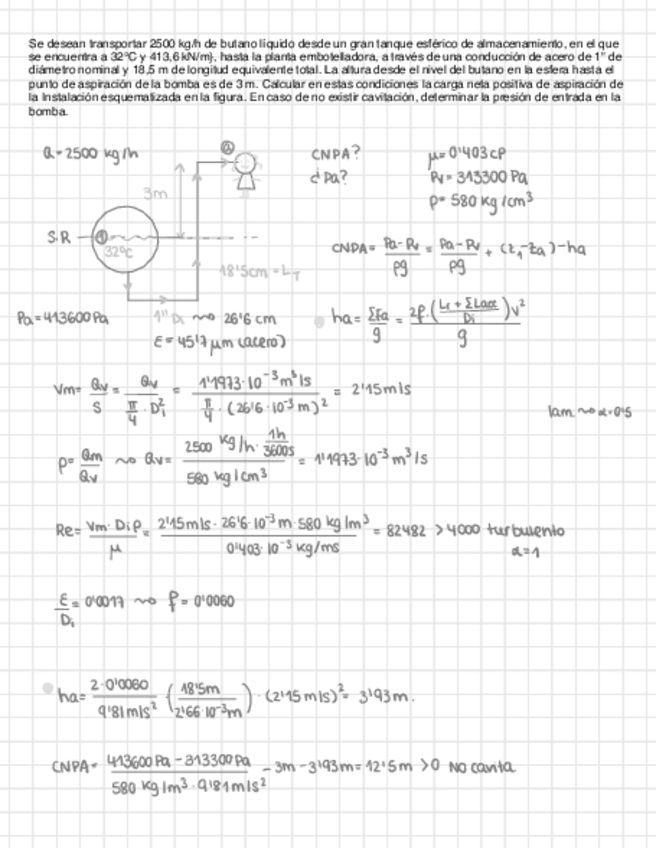 Se desean transportar 2500 kg/h de butano líquido desde un gran tanque esférico de almacenamiento, en el que
se encuentra a 32°C y 413,6 kN/m), hasta la planta embotelladora, a través de una conducción de acero de 1" de
diámetro nominal y 18,5 m de longitud equivalente total. La altura desde el nivel del butano en la esfera hasta el
punto de aspiración de la bomba es de 3 m. Calcular en estas condiciones la carga neta positiva de aspiración de
la Instalación esquematizada en la figura. En caso de no existir cavitación, determinar la presión de entrada en la
bomba.
Q = 2500 kg/h
a
CNPA?
μ = 0'403 cP
¿Pa?
Pv = 313300 Pa
3m
ρ = 580 kg/cm³
S.R
1
32ºC
CNPA = Pa - Pv / ρg = Pa - Pv / ρg + (z₁ - za) - ha
18'5cm = LT
Pa = 413600 Pa
1" Di ~> 26'6 cm
ha = ΣFa / g = 2f · (Lt + ΣLacc / Di) v² / g
ε = 45'7 μm (acero)
Vm = Qv / S = Qv / π/4 · Di² = 1'1973 · 10⁻³ m³/s / π/4 · (26'6 · 10⁻³ m)² = 2'15 m/s
lam ~> α = 0'5
ρ = Qm / Qv ~> Qv = 2500 kg/h · 1h/3600s / 580 kg/cm³ = 1'1973 · 10⁻³ m³/s
Re = Vm · Di ρ / μ = 2'15 m/s · 26'6 · 10⁻³ m · 580 kg/m³ / 0'403 · 10⁻³ kg/ms = 82482 > 4000 turbulento
α = 1
ε / Di = 0'0017 ~> f = 0'0060
ha = 2 · 0'0060 / 9'81 m/s² (18'5m / 2'66 · 10⁻³ m) · (2'15 m/s)² = 3'93 m.
CNPA = 413600 Pa - 313300 Pa / 580 kg/m³ · 9'81 m/s² - 3m - 3'93m = 12'5m > 0 No cavita